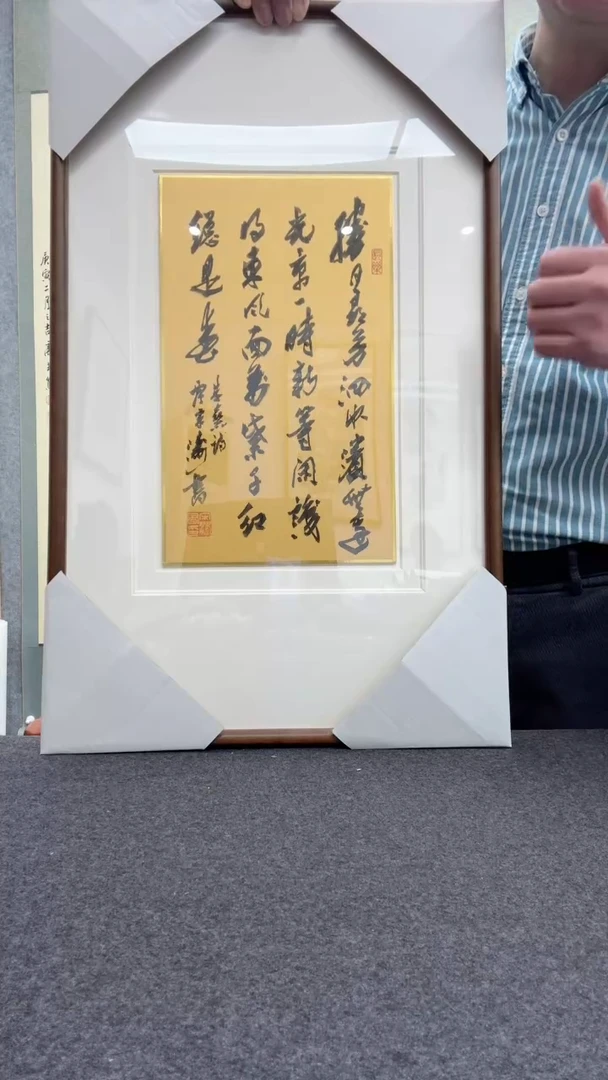 勝日尋芳泗水濱無邊
光景一時新等閑識
得東風面萬紫千紅
總是春
朱熹詩
書
庚寅二月之吉